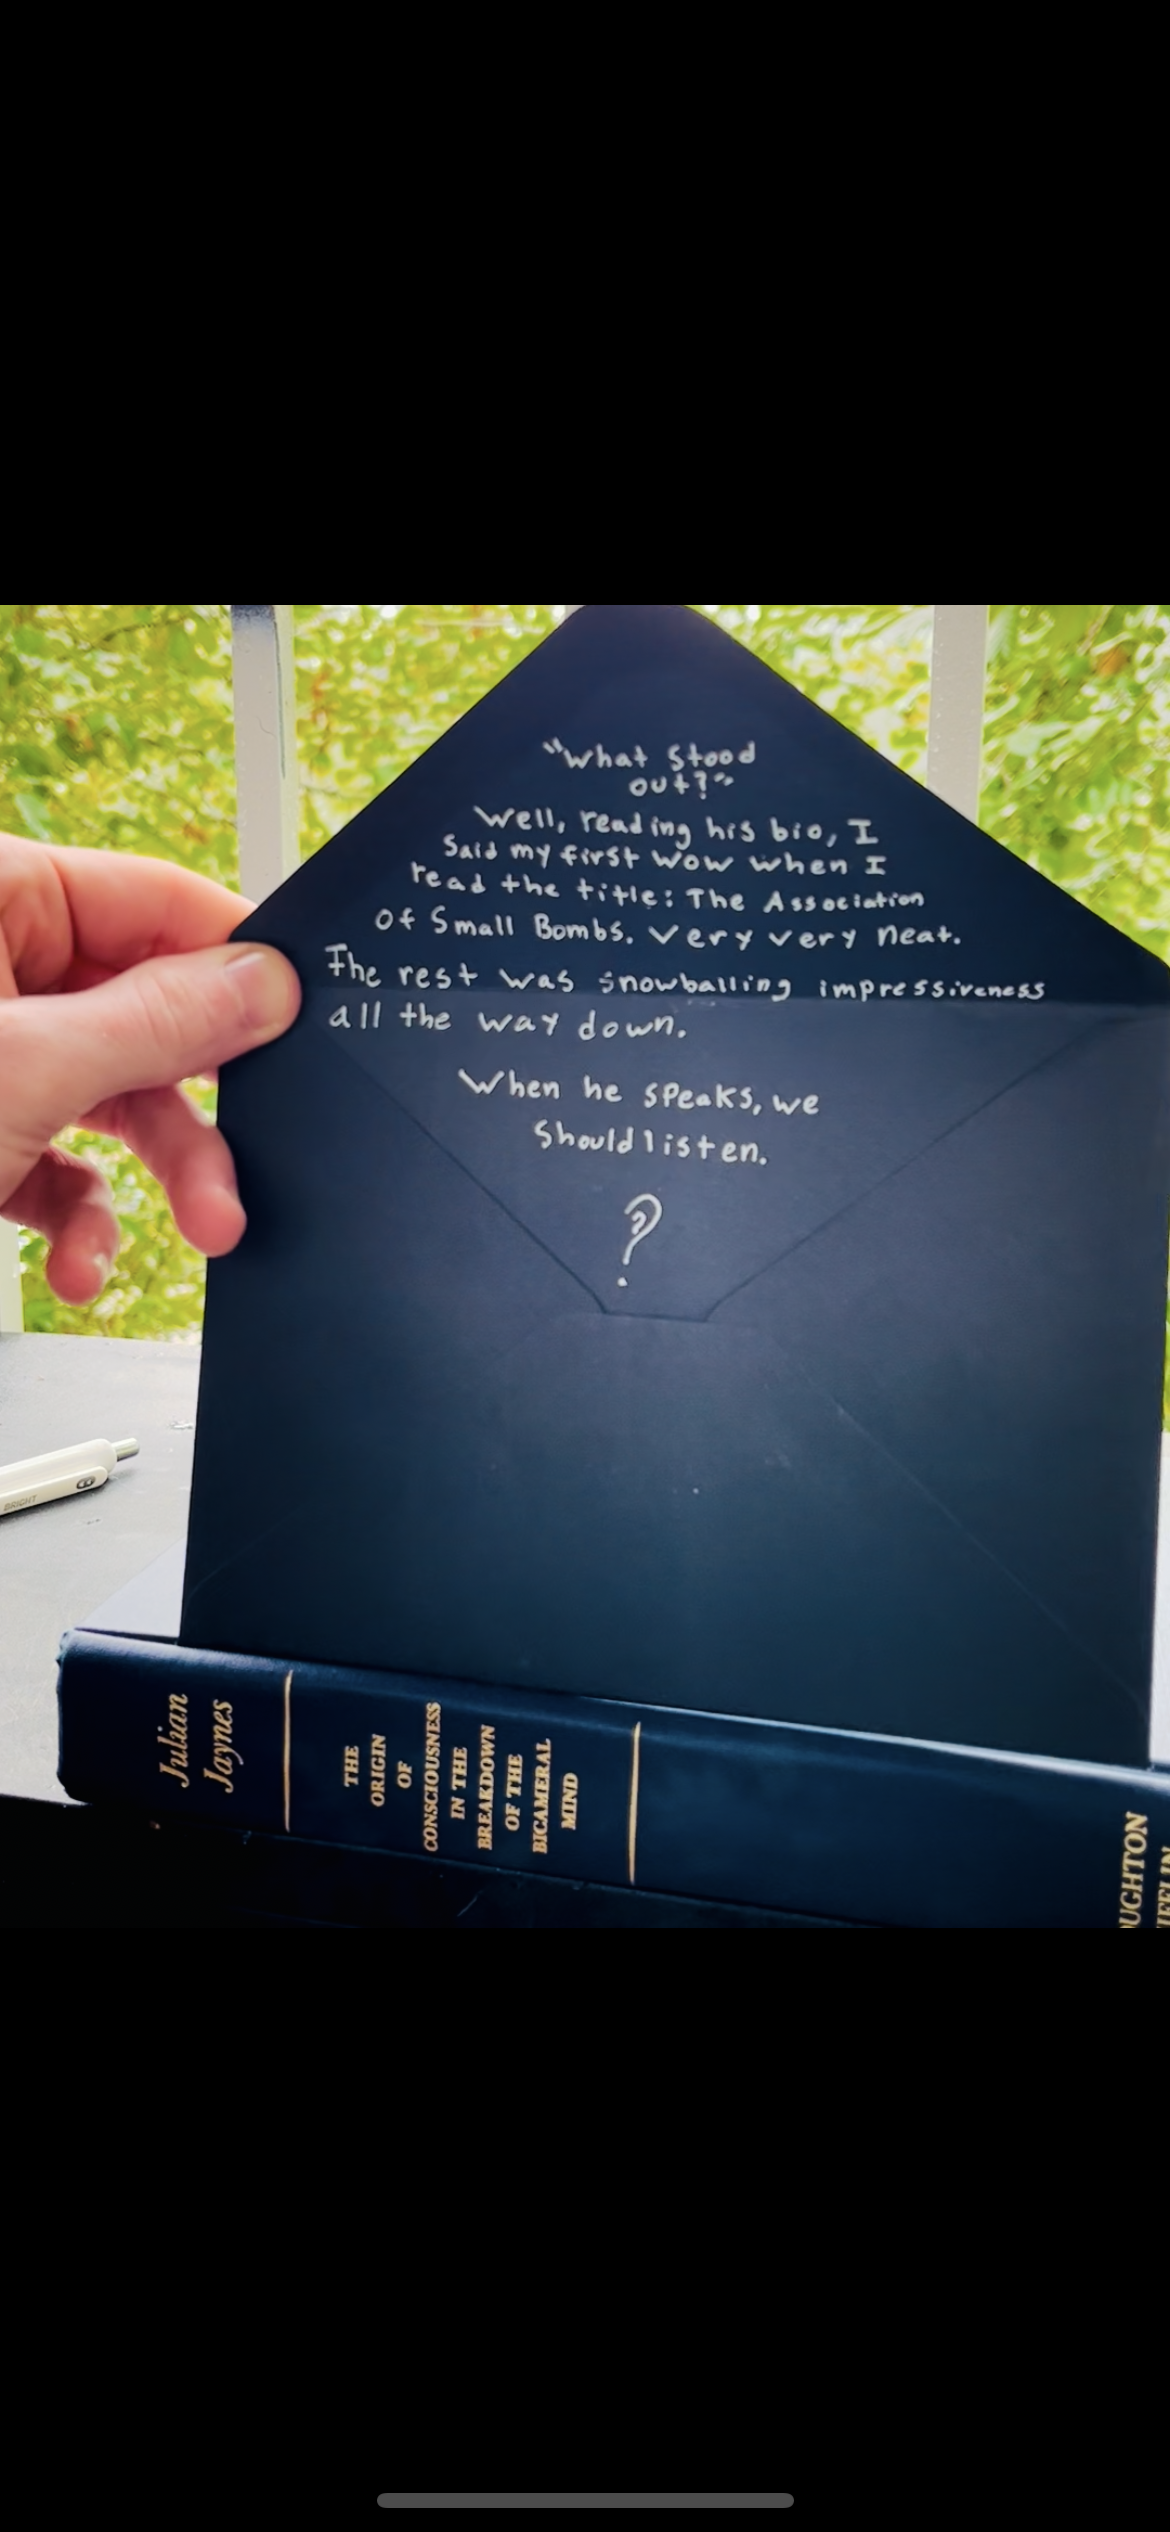 "What stood
out?"
Well, reading his bio, I
said my first wow when I
read the title: The Association
of Small Bombs. Very very neat.
The rest was snowballing impressiveness
all the way down.
When he speaks, we
should listen.
?
BRIGHT
Julian
Jaynes
THE
ORIGIN
OF
CONSCIOUSNESS
IN THE
BREAKDOWN
OF THE
BICAMERAL
MIND
OUGHTON